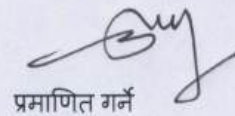 प्रमाणित गर्ने